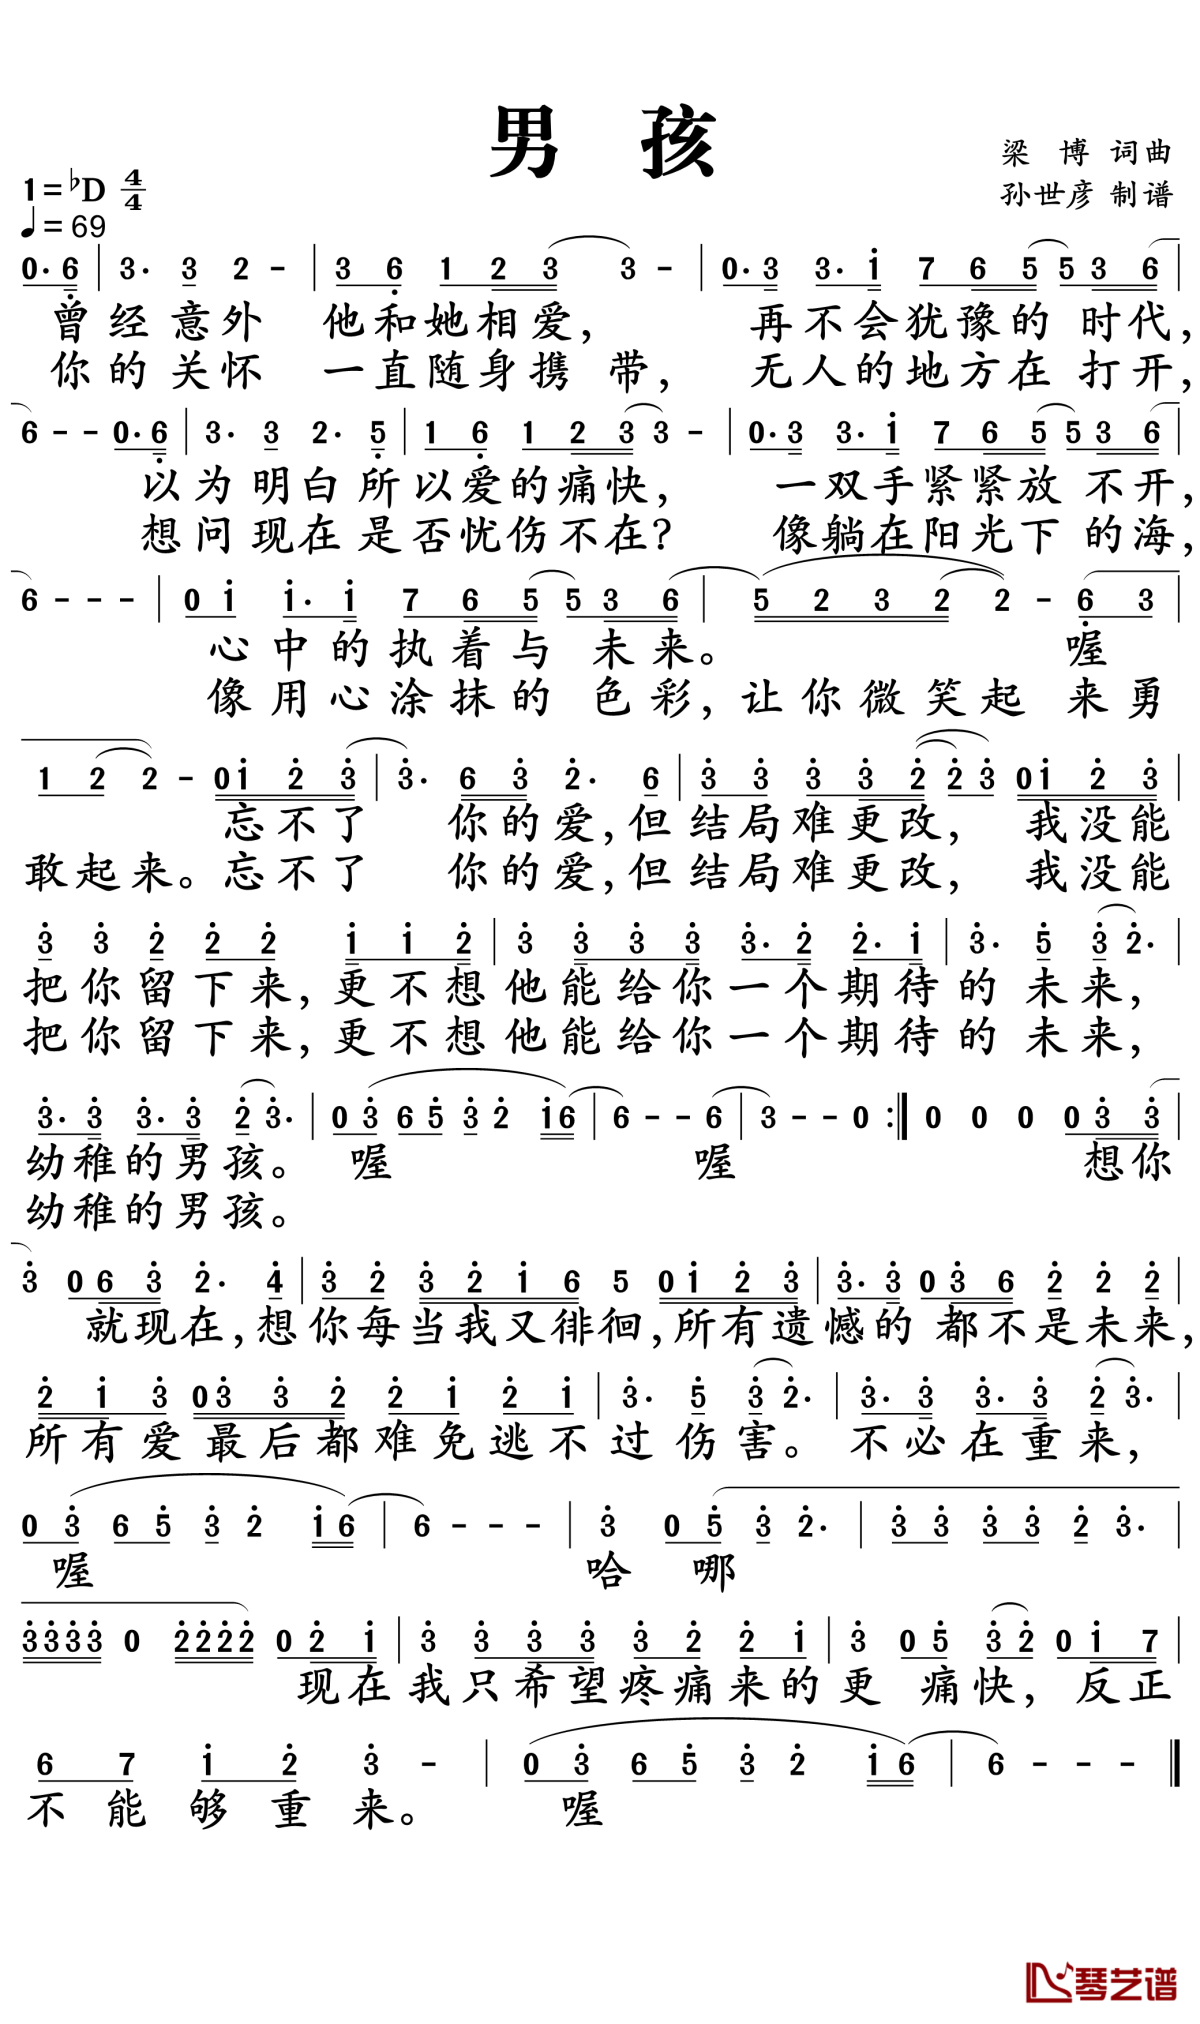 男 孩
梁 博 词曲
孙世彦 制谱
1=♭D 4/4
♩=69
0· 6̣ | 3· 3 2 - | 3 6̣ 1 2 3 3 - | 0· 3 3· i 7 6 5 5 3 6 |
曾经意外 他和她相爱， 再不会犹豫的 时代，
你的关怀 一直随身携 带， 无人的地方在 打开，
6 - - 0· 6̣ | 3· 3 2· 5̣ | 1 6̣ 1 2 3 3 - | 0· 3 3· i 7 6 5 5 3 6 |
以为明白所以爱的痛快， 一双手紧紧放 不开，
想问现在是否忧伤不在？ 像躺在阳光下 的海，
6 - - - | 0 i i· i 7 6 5 5 3 6 | 5 2 3 2 2 - 6̣ 3 |
心中的执着与 未来。 喔
像用心涂抹的 色彩，让你微笑起 来勇
1 2 2 - 0 i 2̇ 3̇ | 3̇· 6 3̇ 2̇· 6 | 3̇ 3̇ 3̇ 3̇ 2̇ 2̇ 3̇ 0 i 2̇ 3̇ |
忘不了 你的爱，但结局难更改， 我没能
敢起来。忘不了 你的爱，但结局难更改， 我没能
3̇ 3̇ 2̇ 2̇ 2̇ i i 2̇ | 3̇ 3̇ 3̇ 3̇ 3̇· 2̇ 2̇· i | 3̇· 5̇ 3̇ 2̇· |
把你留下来，更不想他能给你一个期待的 未来，
把你留下来，更不想他能给你一个期待的 未来，
3̇· 3̇ 3̇· 3̇ 2̇ 3̇· | 0 3̇ 6 5̇ 3̇ 2̇ i 6 | 6 - - 6 | 3 - - 0 :| 0 0 0 0 3̇ 3̇ |
幼稚的男孩。 喔 喔 想你
幼稚的男孩。
3̇ 0 6 3̇ 2̇· 4̇ | 3̇ 2̇ 3̇ 2̇ i 6 5 0 i 2̇ 3̇ | 3̇· 3̇ 0 3̇ 6 2̇ 2̇ 2̇ |
就现在，想你每当我又徘徊，所有遗憾的 都不是未来，
2̇ i 3̇ 0 3̇ 3̇ 2̇ 2̇ i 2̇ i | 3̇· 5̇ 3̇ 2̇· | 3̇· 3̇ 3̇· 3̇ 2̇ 3̇· |
所有爱最后都难免逃不过伤害。 不必在重来，
0 3̇ 6 5̇ 3̇ 2̇ i 6 | 6 - - - | 3̇ 0 5̇ 3̇ 2̇· | 3̇ 3̇ 3̇ 3̇ 2̇ 3̇· |
喔 哈 哪
3̇ 3̇ 3̇ 3̇ 0 2̇ 2̇ 2̇ 2̇ 0 2̇ i | 3̇ 3̇ 3̇ 3̇ 3̇ 2̇ 2̇ i | 3̇ 0 5̇ 3̇ 2̇ 0 i 7 |
现在我只希望疼痛来的更 痛快， 反正
6 7 i 2̇ 3̇ - | 0 3̇ 6 5̇ 3̇ 2̇ i 6 | 6 - - - ‖
不能够重来。 喔
琴艺谱